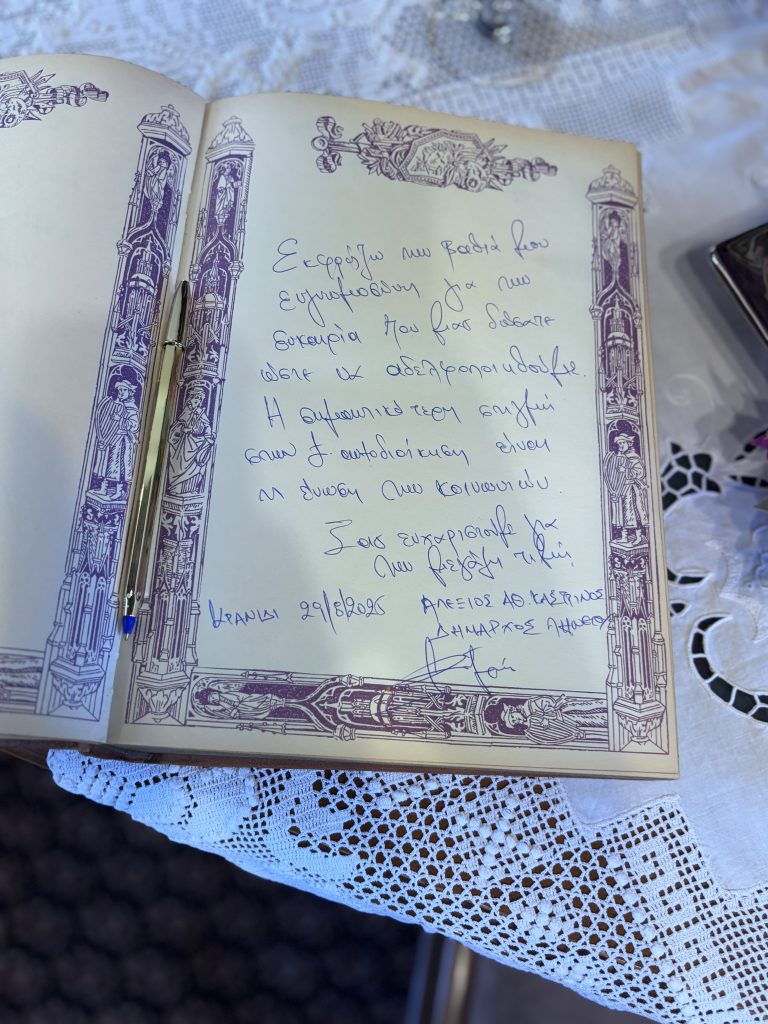 Εκφράζω την βαθιά μου
ευγνωμοσύνη για την
ευκαιρία που μας δώσατε
ώστε να αδελφοποιηθούμε.
Η σημαντικότερη στιγμή
στην τ. αυτοδιοίκηση είναι
η ένωση των κοινωνιών.
Σας ευχαριστούμε για
την μεγάλη τιμή.
ΚΡΑΝΙΔΙ 29/8/2025 ΑΛΕΞΙΟΣ ΑΘ. ΚΑΣΤΡΙΝΟΣ
ΔΗΜΑΡΧΟΣ